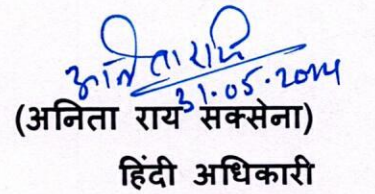 अनिता राय
31.05.2014
(अनिता राय सक्सेना)
हिंदी अधिकारी